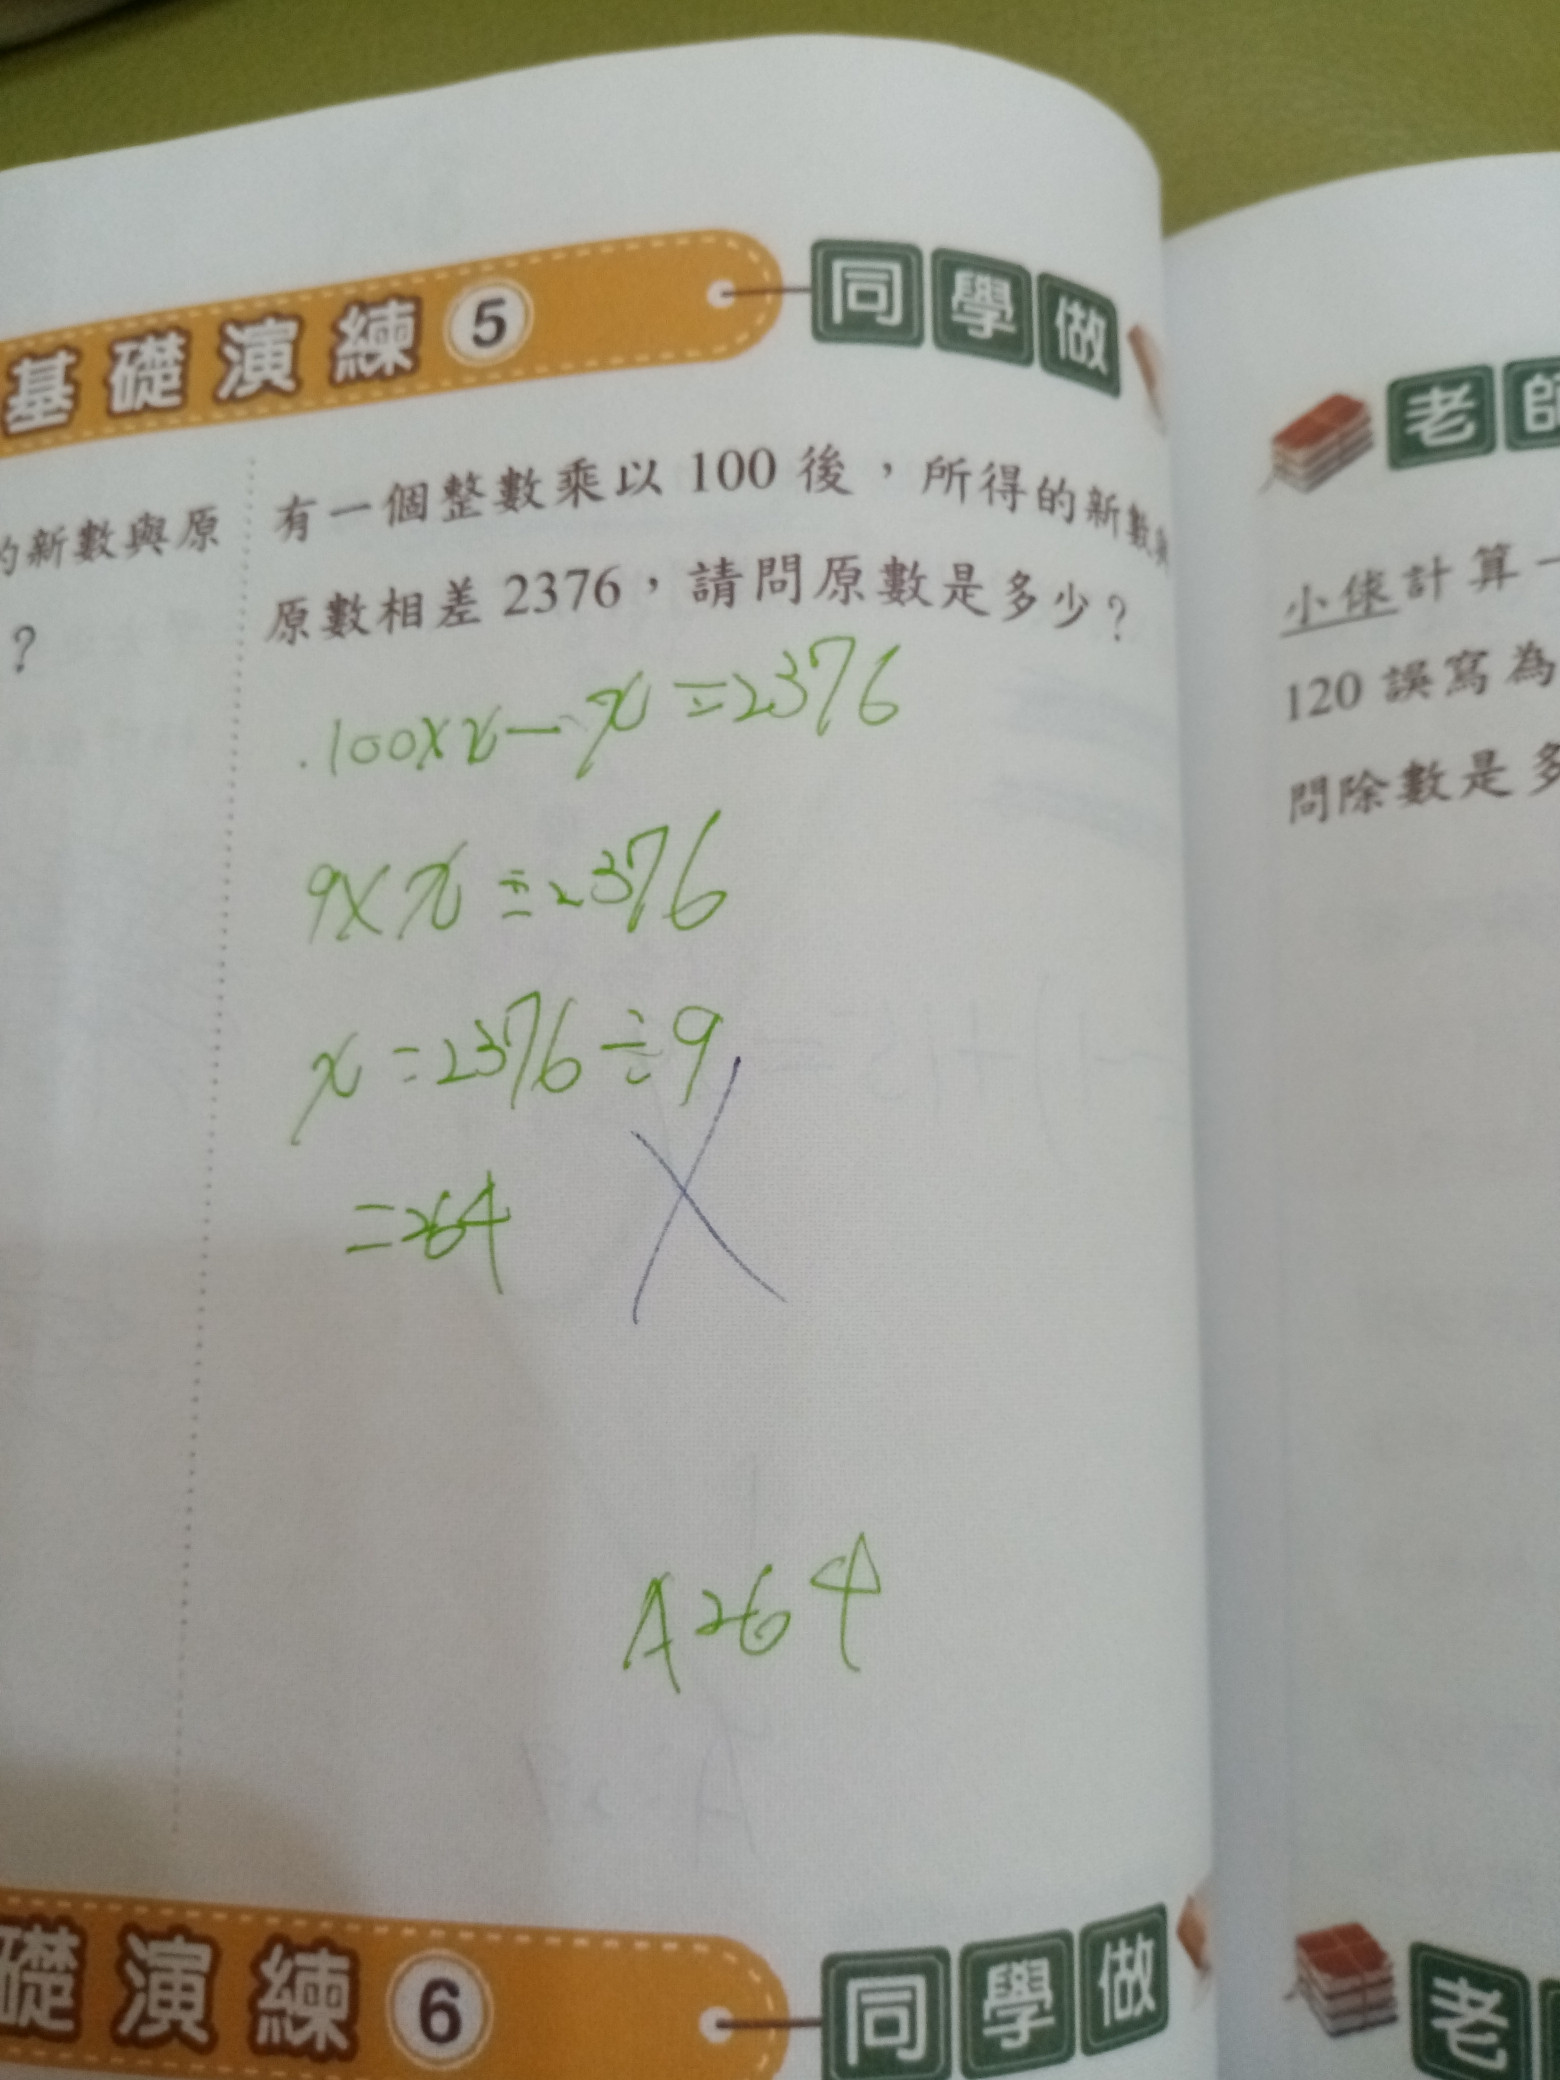 基礎演練 5 同學做
的新數與原
?
有一個整數乘以 100 後，所得的新數與
原數相差 2376，請問原數是多少?
100×x－x=2376
9×x=2376
x=2376÷9
=264
A264
礎演練 6 同學做
老師
小傑計算一
120 誤寫為
問除數是多
老